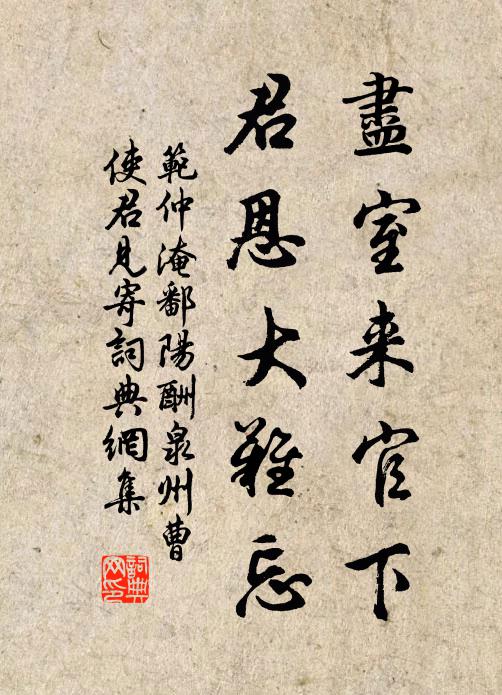 盡室来官下
君恩大難忘
範仲淹鄱陽酬泉州曹
使君見寄詞典網集
詞典网印